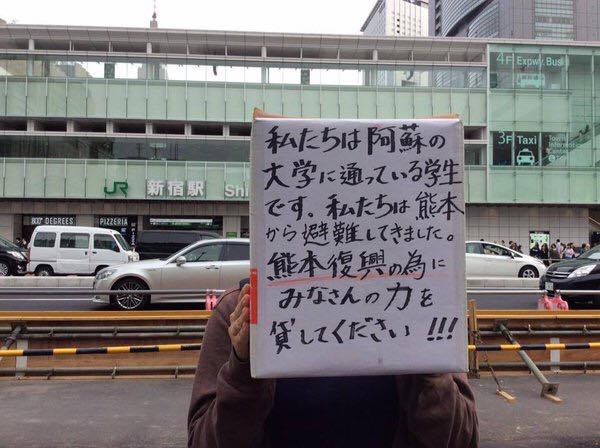 4F Expwy. Bus
3F Taxi
JR 新宿駅 Shi
800° DEGREES
PIZZERIA
私たちは阿蘇の
大学に通っている学生
です。私たちは熊本
から避難してきました。
熊本復興の為に
みなさんの力を
貸してください!!!